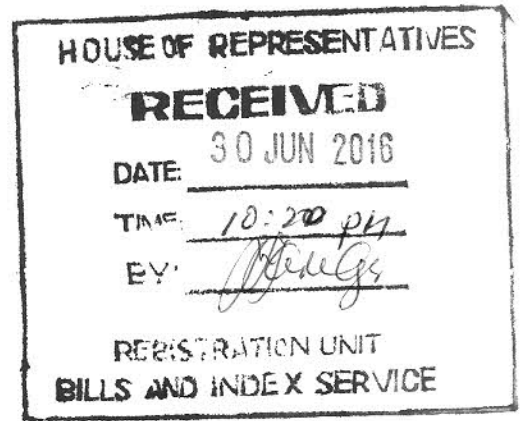 HOUSE OF REPRESENTATIVES
RECEIVED
DATE: 30 JUN 2016
TIME: 10:20 PM
BY:
REGISTRATION UNIT
BILLS AND INDEX SERVICE